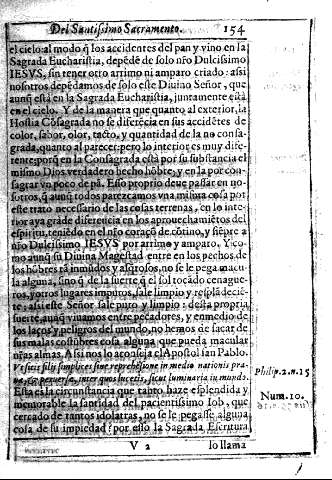 Del Santissimo Sacramento. 154
el cielo: al modo q̃ los accidentes del pan y vino en la
Sagrada Eucharistia, depẽdẽ de solo nr̃o Dulcissimo
IESVS, sin tener otro arrimo ni amparo criado: assi
nosotros depẽdamos de solo este Divino Señor, que
aunq̃ està en la Sagrada Eucharistia, juntamente està
en el cielo. Y de la manera que quanto al exterior, la
Hostia Cõsagrada no se diferẽcia en sus accidẽtes de
color, sabor, olor, tacto, y quantidad de la no consa-
grada, quanto al parecer; pero lo interior es muy dife-
rente: porq̃ en la Consagrada està por su substancia el
mismo Dios verdadero hecho hõbre; y en la por con-
sagrar vn poco de pã. Esso proprio deue passar en no-
sotros, q̃ aunq̃ todos parezcamos vna misma cosa por
este trato necessario de las cosas terrenas, en lo inte-
rior aya grãde diferencia en los aprouechamiẽtos del
espiritu, teniẽdo en el nr̃o coraçõ de cõtino, y siẽpre a
nr̃o Dulcissimo IESVS por arrimo y amparo. Y co-
mo aunq̃ su Diuina Magestad entre en los pechos de
los hõbres tã inmũdos y asq̃rosos, no se le pega macu
la alguna, sino q̃ de la suerte q̃ el sol tocãdo cenaga-
res, y otros lugares impuros, sale limpio y resplãdecie-
te; assi este Señor sale puro y limpio: desta propria
suerte aunq̃ viuamos entre pecadores, y enmedio de
los laços y peligros del mundo, no hemos de sacar de
sus malas costũbres cosa alguna que pueda macular
nr̃as almas. Assi nos lo aconseja el Apostol san Pablo.
Vt sitis filij simplices sine reprehẽsione in medio nationis pra-
luminaria in mundo. Philip. 2. n. 15
Esta es la circunstancia que tanto haze esplendida y
memorable la santidad del pacientissimo Iob, que Num. 10.
cercado de tantos idolatras, no se le pegasse alguna
cosa de su impiedad: por esso la Sagrada Escritura
V 2 lo llama